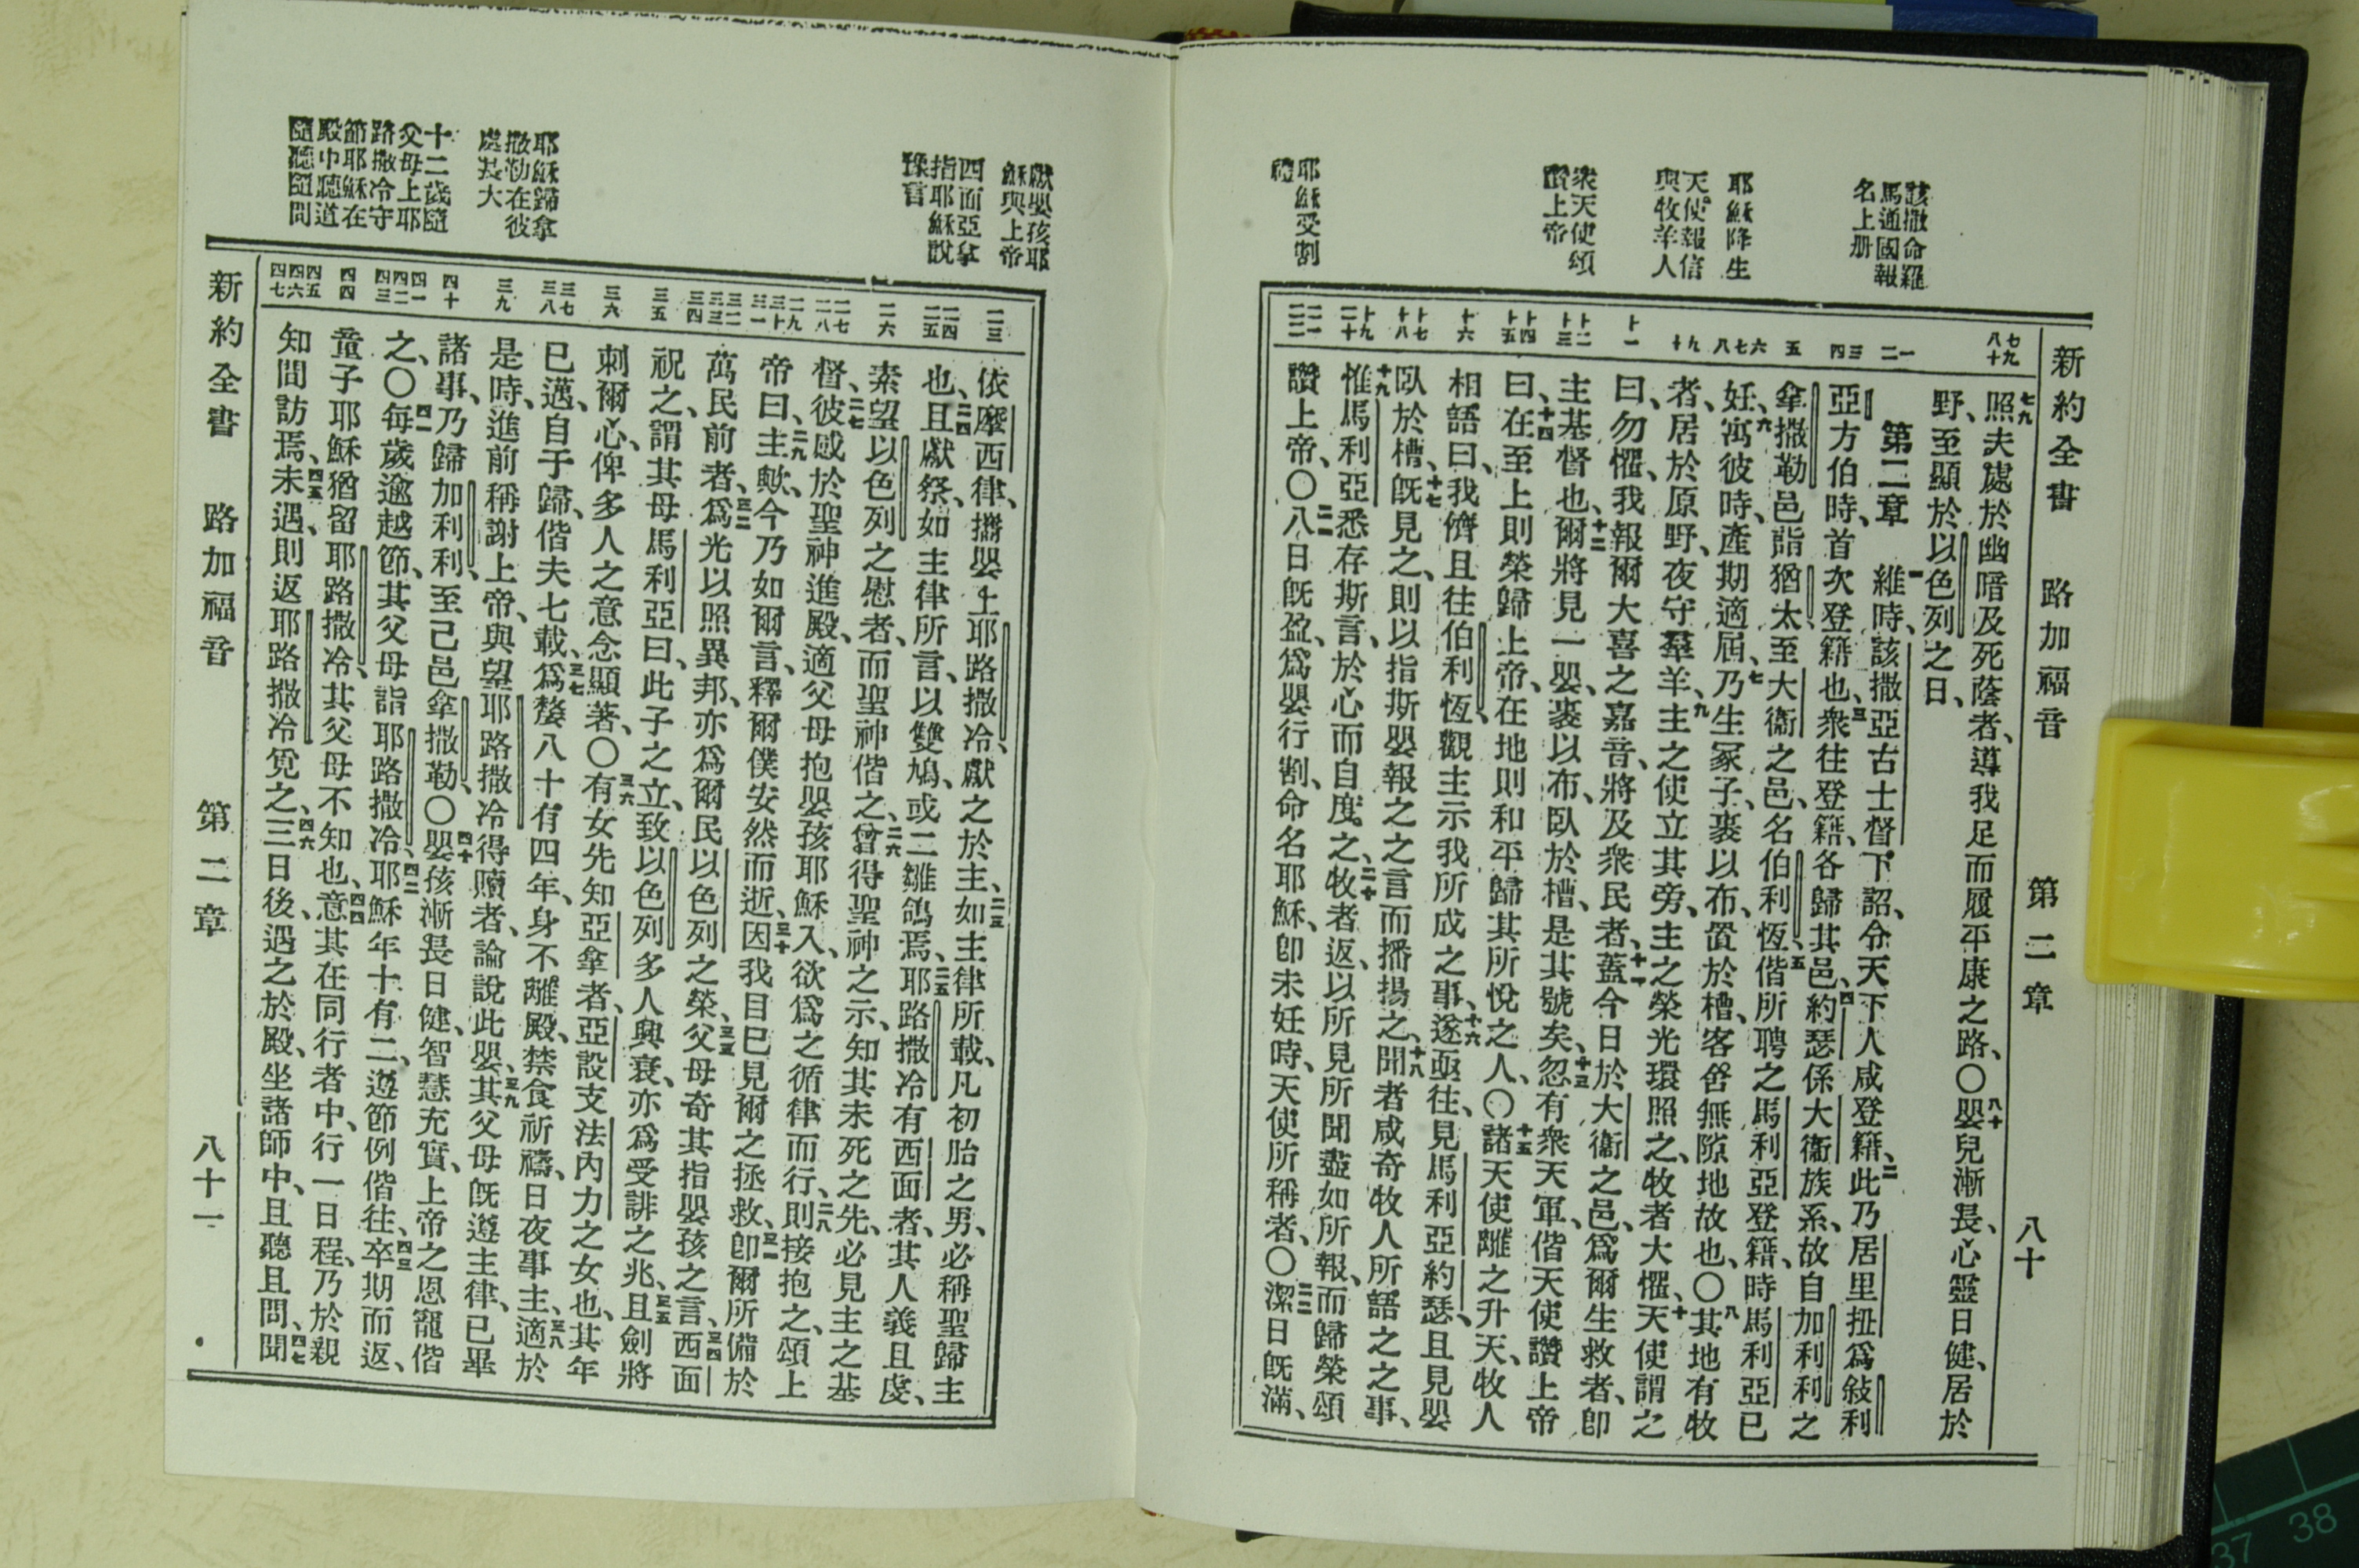 新約全書 路加福音 第二章 八十
該撒命羅
馬通國報
名上册
耶穌降生
天使報信
與牧羊人
衆天使頌
讚上帝
耶穌受割
禮
七九
八十
一
二
三
四
五
六
七
八
九
十
十一
十二
十三
十四
十五
十六
十七
十八
十九
二十
二一
二二
七九照夫處於幽暗及死蔭者、導我足而履平康之路、〇八十嬰兒漸長、心靈日健、居於
野、至顯於以色列之日、
第二章 一維時、該撒亞古士督下詔、令天下人咸登籍、二此乃居里扭爲敍利
亞方伯時、首次登籍也、三衆往登籍、各歸其邑、四約瑟係大衞族系、故自加利利之
拿撒勒邑詣猶太至大衞之邑、名伯利恆、五偕所聘之馬利亞登籍、時馬利亞已
妊、六寓彼時、產期適屆、七乃生冢子、裹以布、置於槽、客舍無隙地故也、〇八其地有牧
者、居於原野、夜守羣羊、九主之使立其旁、主之榮光環照之、牧者大懼、十天使謂之
曰、勿懼、我報爾大喜之嘉音、將及衆民者、十一蓋今日於大衞之邑、爲爾生救者、卽
主基督也、十二爾將見一嬰、裹以布、臥於槽、是其號矣、十三忽有衆天軍、偕天使讚上帝
曰、十四在至上則榮歸上帝、在地則和平歸其所悅之人、〇十五諸天使離之升天、牧人
相語曰、我儕且往伯利恆、觀主示我所成之事、十六遂亟往、見馬利亞約瑟、且見嬰
臥於槽、十七旣見之、則以指斯嬰報之之言而播揚之、十八聞者咸奇牧人所語之之事、
十九惟馬利亞悉存斯言、於心而自度之、二十牧者返、以所見所聞盡如所報、而歸榮頌
讚上帝、〇二一八日旣盈、爲嬰行割、命名耶穌、卽未妊時、天使所稱者、〇二二潔日旣滿、
獻嬰孩耶
穌與上帝
四面亞拿
指耶穌說
豫言
耶穌歸拿
撒勒在彼
處長大
十二歲隨
父母上耶
路撒冷守
節耶穌在
殿中聽道
隨聽隨問
二三
二四
二五
二六
二七
二八
二九
三十
三一
三二
三三
三四
三五
三六
三七
三八
三九
四十
四一
四二
四三
四四
四五
四六
四七
依摩西律、攜嬰上耶路撒冷、獻之於主、二三如主律所載、凡初胎之男、必稱聖歸主
也、二四且獻祭、如主律所言、以雙鳩、或二雛鴿焉、二五耶路撒冷有西面者、其人義且虔、
素望以色列之慰者、而聖神偕之、二六曾得聖神之示、知其未死之先、必見主之基
督、二七彼感於聖神進殿、適父母抱嬰孩耶穌入、欲爲之循律而行、二八則接抱之、頌上
帝曰、二九主歟、今乃如爾言、釋爾僕安然而逝、三十因我目已見爾之拯救、三一卽爾所備於
萬民前者、三二爲光以照異邦、亦爲爾民以色列之榮、三三父母奇其指嬰孩之言、三四西面
祝之、謂其母馬利亞曰、此子之立、致以色列多人興衰、亦爲受誹之兆、三五且劍將
刺爾心、俾多人之意念顯著、〇三六有女先知亞拿者、亞設支法內力之女也、其年
已邁、自于歸、偕夫七載、三七爲嫠八十有四年、身不離殿、禁食祈禱、日夜事主、三八適於
是時、進前稱謝上帝、與望耶路撒冷得贖者、論說此嬰、三九其父母旣遵主律、已畢
諸事、乃歸加利利、至己邑拿撒勒、〇四十嬰孩漸長日健、智慧充實、上帝之恩寵偕
之、〇四一每歲逾越節、其父母詣耶路撒冷、四二耶穌年十有二、遵節例偕往、四三卒期而返、
童子耶穌猶留耶路撒冷、其父母不知也、四四意其在同行者中、行一日程、乃於親
知間訪焉、四五未遇、則返耶路撒冷覓之、四六三日後、遇之於殿、坐諸師中、且聽且問、四七聞
新約全書 路加福音 第二章 八十一
37 38